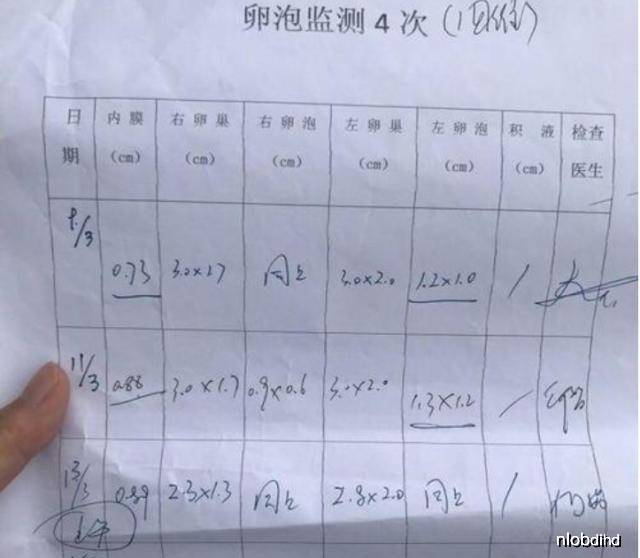 卵泡监测4次
日期 内膜(cm) 右卵巢(cm) 右卵泡(cm) 左卵巢(cm) 左卵泡(cm) 积液(cm) 检查医生
/3 0.73 3.0×1.7 同上 3.0×2.0 1.2×1.0 /
11/3 0.88 3.0×1.7 0.9×0.6 3.0×2.0 1.3×1.2 /
13/3 0.89 2.3×1.3 同上 2.8×2.0 同上 /
上午
nlobdihd